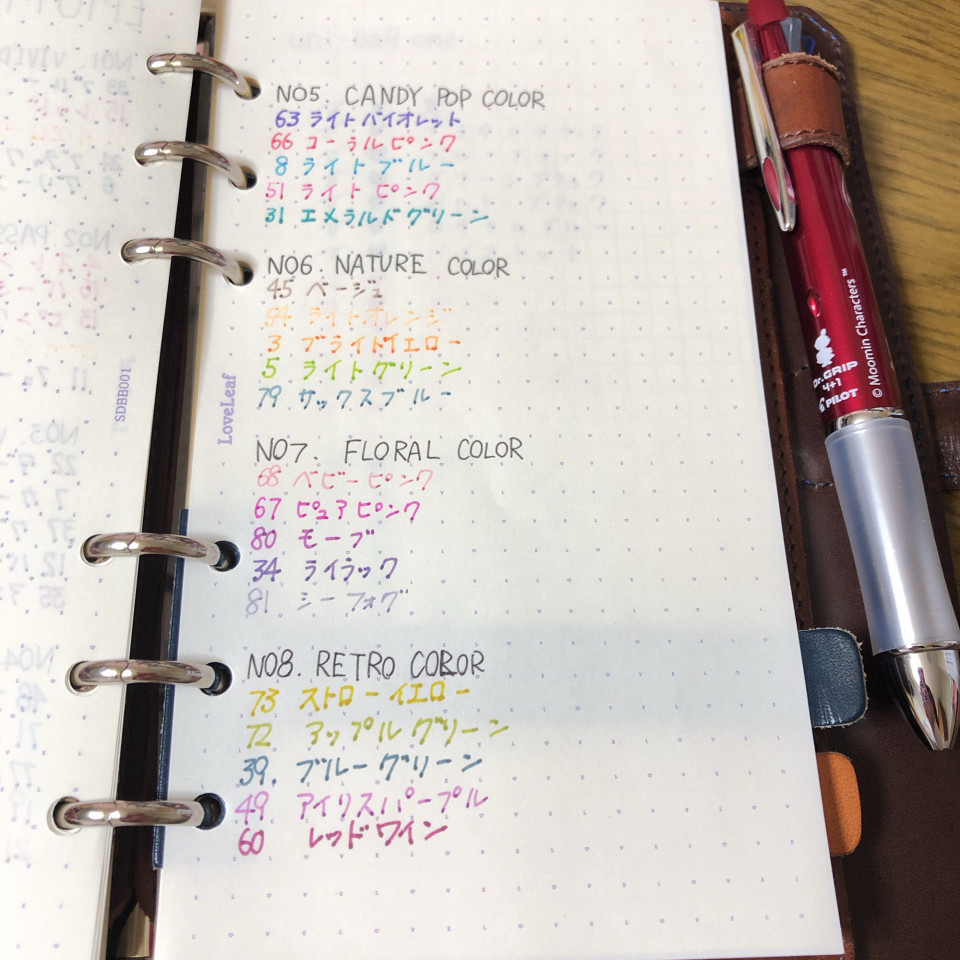 NO5. CANDY POP COLOR
63 ライトバイオレット
66 コーラルピンク
8 ライトブルー
51 ライトピンク
31 エメラルドグリーン
NO6. NATURE COLOR
45 ベージュ
54 ライトオレンジ
3 ブライトイエロー
5 ライトグリーン
79 サックスブルー
NO7. FLORAL COLOR
68 ベビーピンク
67 ピュアピンク
80 モーブ
34 ライラック
81 シーフォグ
NO8. RETRO COLOR
73 ストローイエロー
72 アップルグリーン
39. ブルーグリーン
49 アイリスパープル
60 レッドワイン
LoveLeaf
SDBB001
Dr.GRIP
4+1
PILOT
© Moomin Characters™